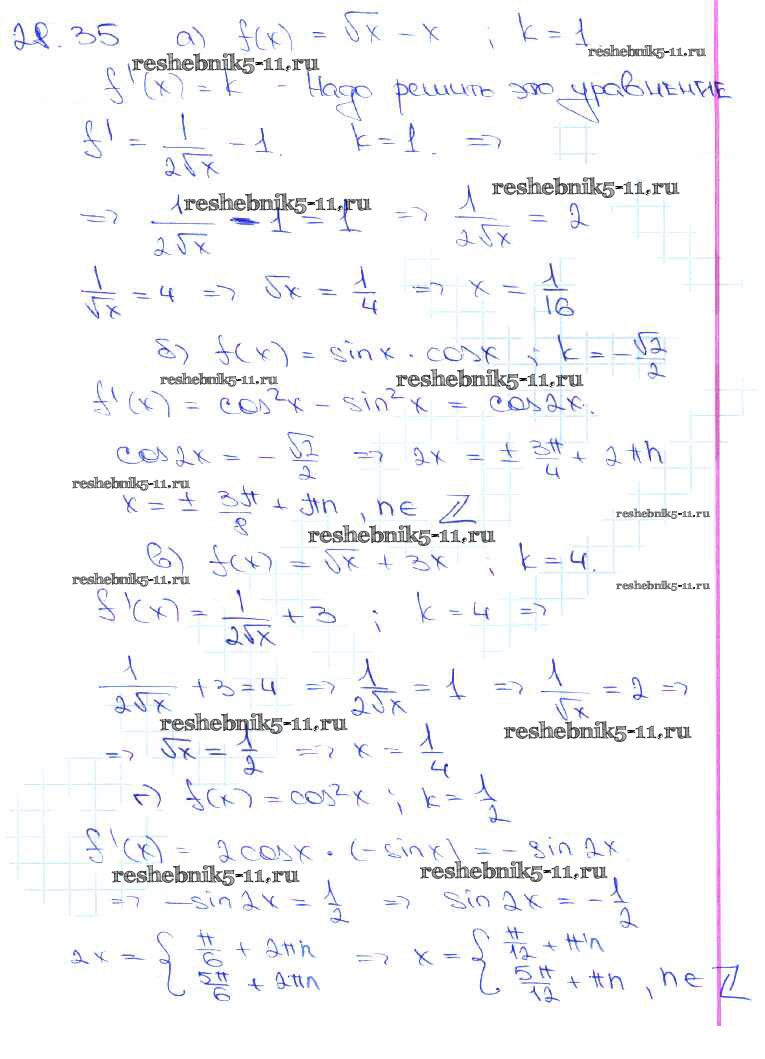 28.35 а) f(x) = √x − x ; k = 1
reshebnik5-11.ru
reshebnik5-11.ru
f'(x) = k - Надо решить это уравнение
f' = 1/(2√x) − 1. k = 1. =>
reshebnik5-11.ru
reshebnik5-11.ru
=> 1/(2√x) − 1 = 1 => 1/(2√x) = 2
1/√x = 4 => √x = 1/4 => x = 1/16
б) f(x) = sinx · cosx ; k = −√2/2
reshebnik5-11.ru
reshebnik5-11.ru
f'(x) = cos²x − sin²x = cos2x.
cos2x = −√2/2 => 2x = ± 3π/4 + 2πn
reshebnik5-11.ru
x = ± 3π/8 + πn , n∈ Z
reshebnik5-11.ru
reshebnik5-11.ru
в) f(x) = √x + 3x ; k = 4.
reshebnik5-11.ru
reshebnik5-11.ru
f'(x) = 1/(2√x) + 3 ; k = 4 =>
1/(2√x) + 3 = 4 => 1/(2√x) = 1 => 1/√x = 2 =>
reshebnik5-11.ru
reshebnik5-11.ru
=> √x = 1/2 => x = 1/4
г) f(x) = cos²x ; k = 1/2
f'(x) = 2cosx · (−sinx) = −sin2x
reshebnik5-11.ru
reshebnik5-11.ru
=> −sin2x = 1/2 => sin2x = −1/2
2x = { π/6 + 2πn => x = { π/12 + πn
5π/6 + 2πn 5π/12 + πn , n∈ Z